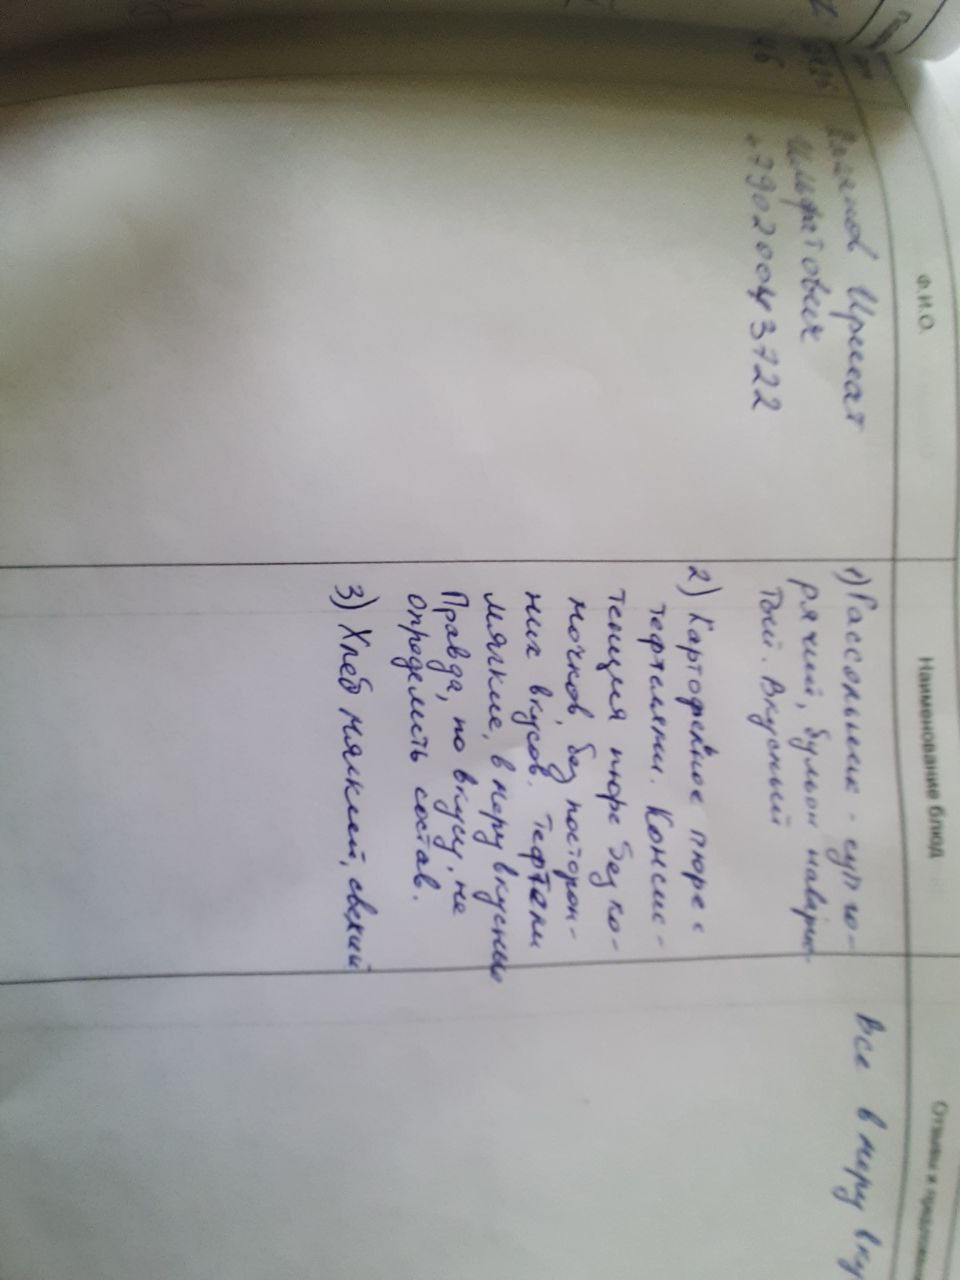 Ф.И.О.
Наименование блюд
Отзывы и предложе
Иринат
Ильфатович
+79020043722
1) Рассольник - суп го-
рячий, бульон навари-
тый. Вкусный
2) Картофельное пюре с
тефтелями. Консис-
тенция пюре без ко-
мочков, без посторон-
них вкусов. Тефтели
мягкие, в меру вкусные
Правда, по вкусу, не
определить состав.
3) Хлеб мягкий, свежий
Все в меру вку